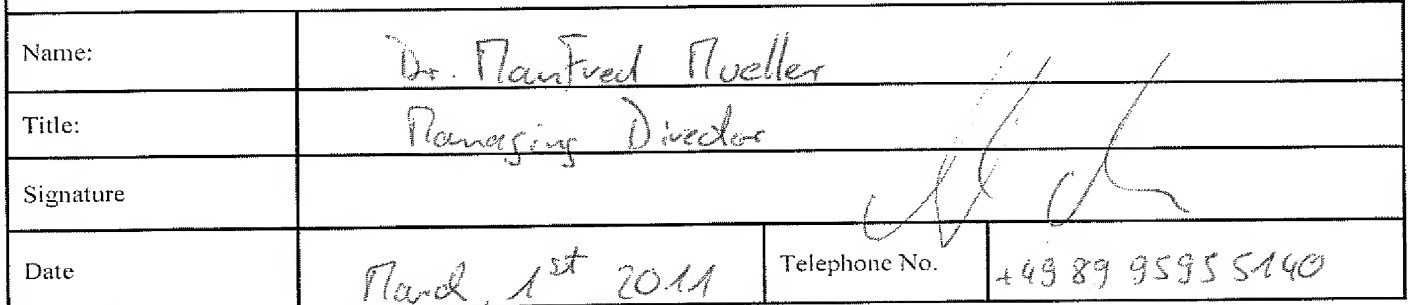 Name: Dr. Manfred Mueller
Title: Managing Director
Signature
Date March, 1st 2011 Telephone No. +49 89 9595 5140